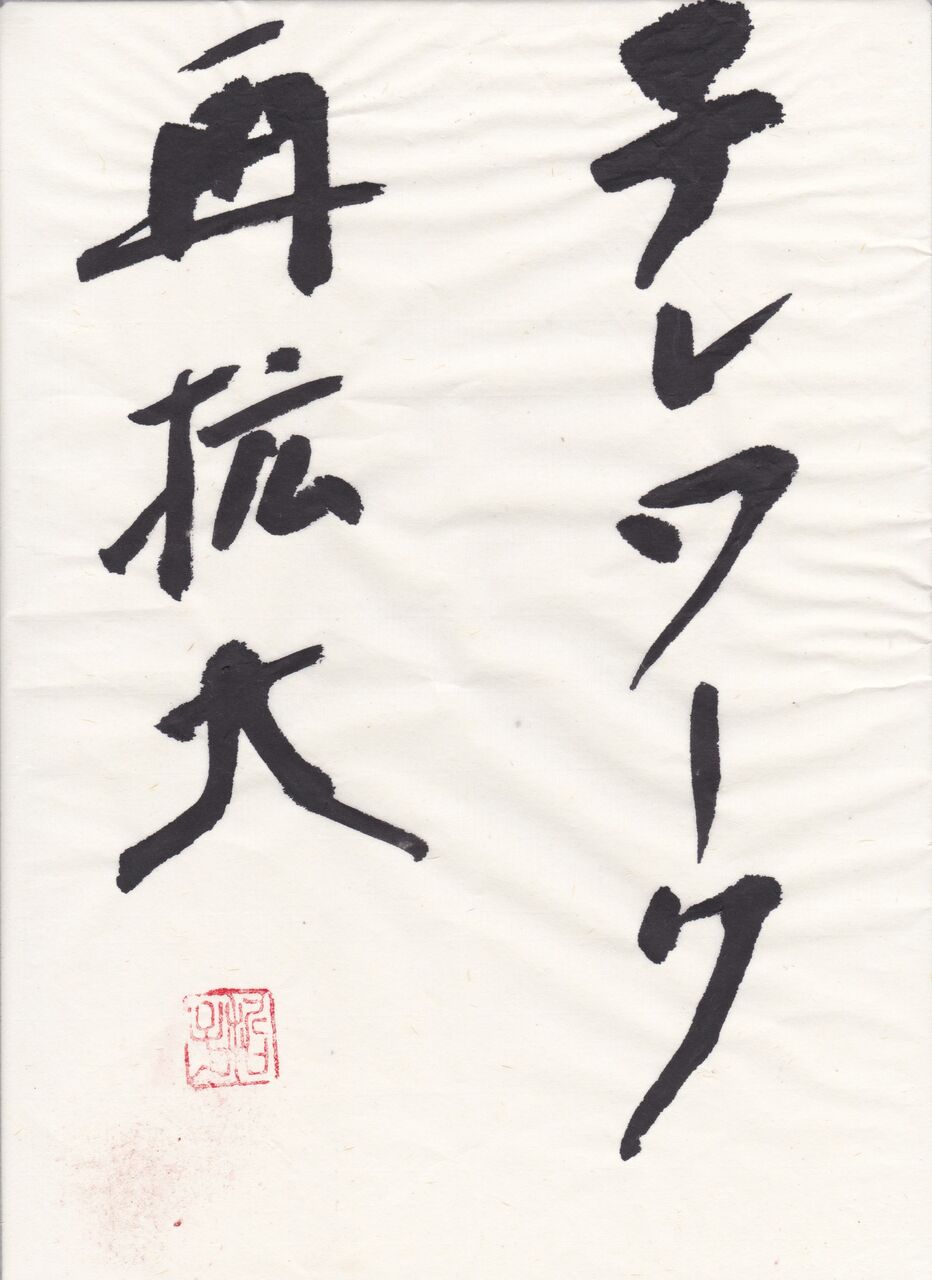 テレワーク
再拡大